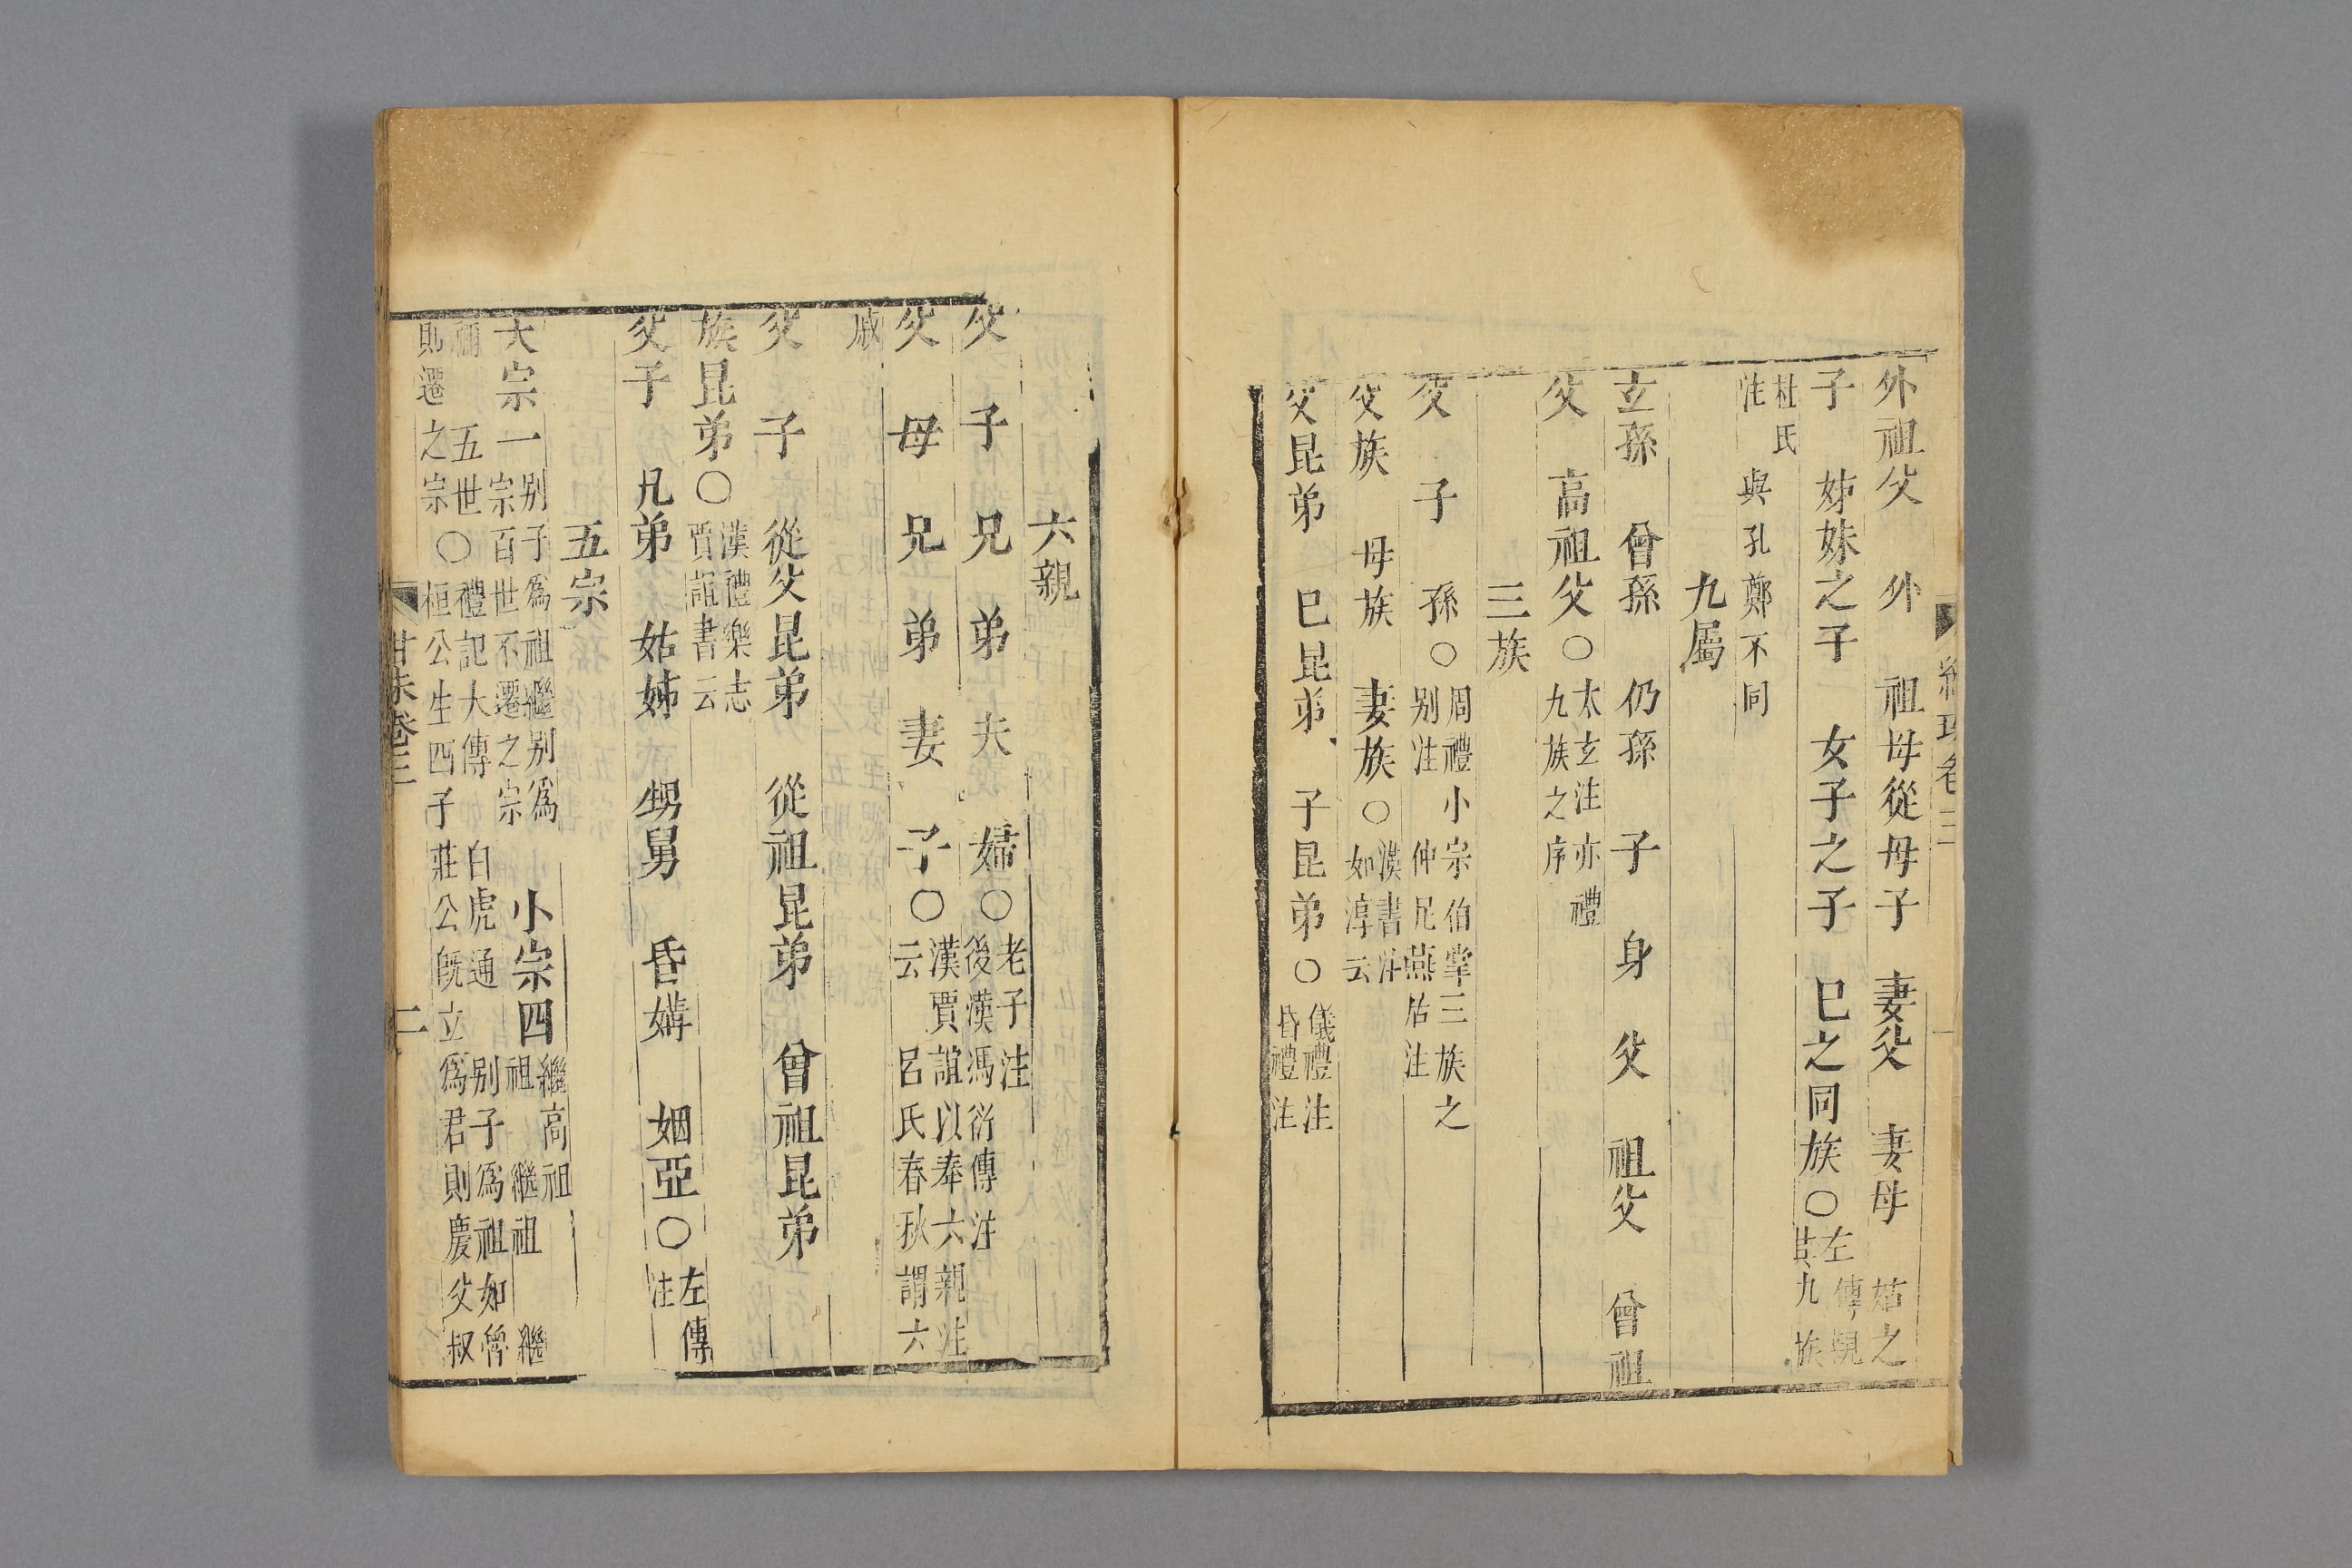 外祖父　外　祖母從母子　妻父　妻母　姑之
子　姊妹之子　女子之子　巳之同族○左傳親其九族
杜氏注　與孔鄭不同
九屬
玄孫　曾孫　仍孫　子　身　父　祖父　曾祖
父　高祖父○太玄注亦禮九族之序
三族
父　子　孫○周禮小宗伯掌三族之別注　仲尼燕居注
父族　母族　妻族○漢書注如淳云
父昆弟　巳昆弟　子昆弟○儀禮注昏禮注
六親
父　子　兄　弟　夫　婦○老子注後漢馮衍傳注
父　母　兄　弟　妻　子○漢賈誼以奉六親注云　呂氏春秋謂六
戚
父　子　從父昆弟　從祖昆弟　曾祖昆弟
族昆弟○漢禮樂志賈誼書云
父子　兄弟　姑姊　甥舅　昏媾　姻亞○左傳注
五宗
大宗一別子爲祖繼別爲宗百世不遷之宗　小宗四繼高祖　繼祖　繼祖
禰　五世則遷之宗○禮記大傳　白虎通　別子爲祖如魯桓公生四子莊公既立爲君則慶父叔
甘朱卷三
二